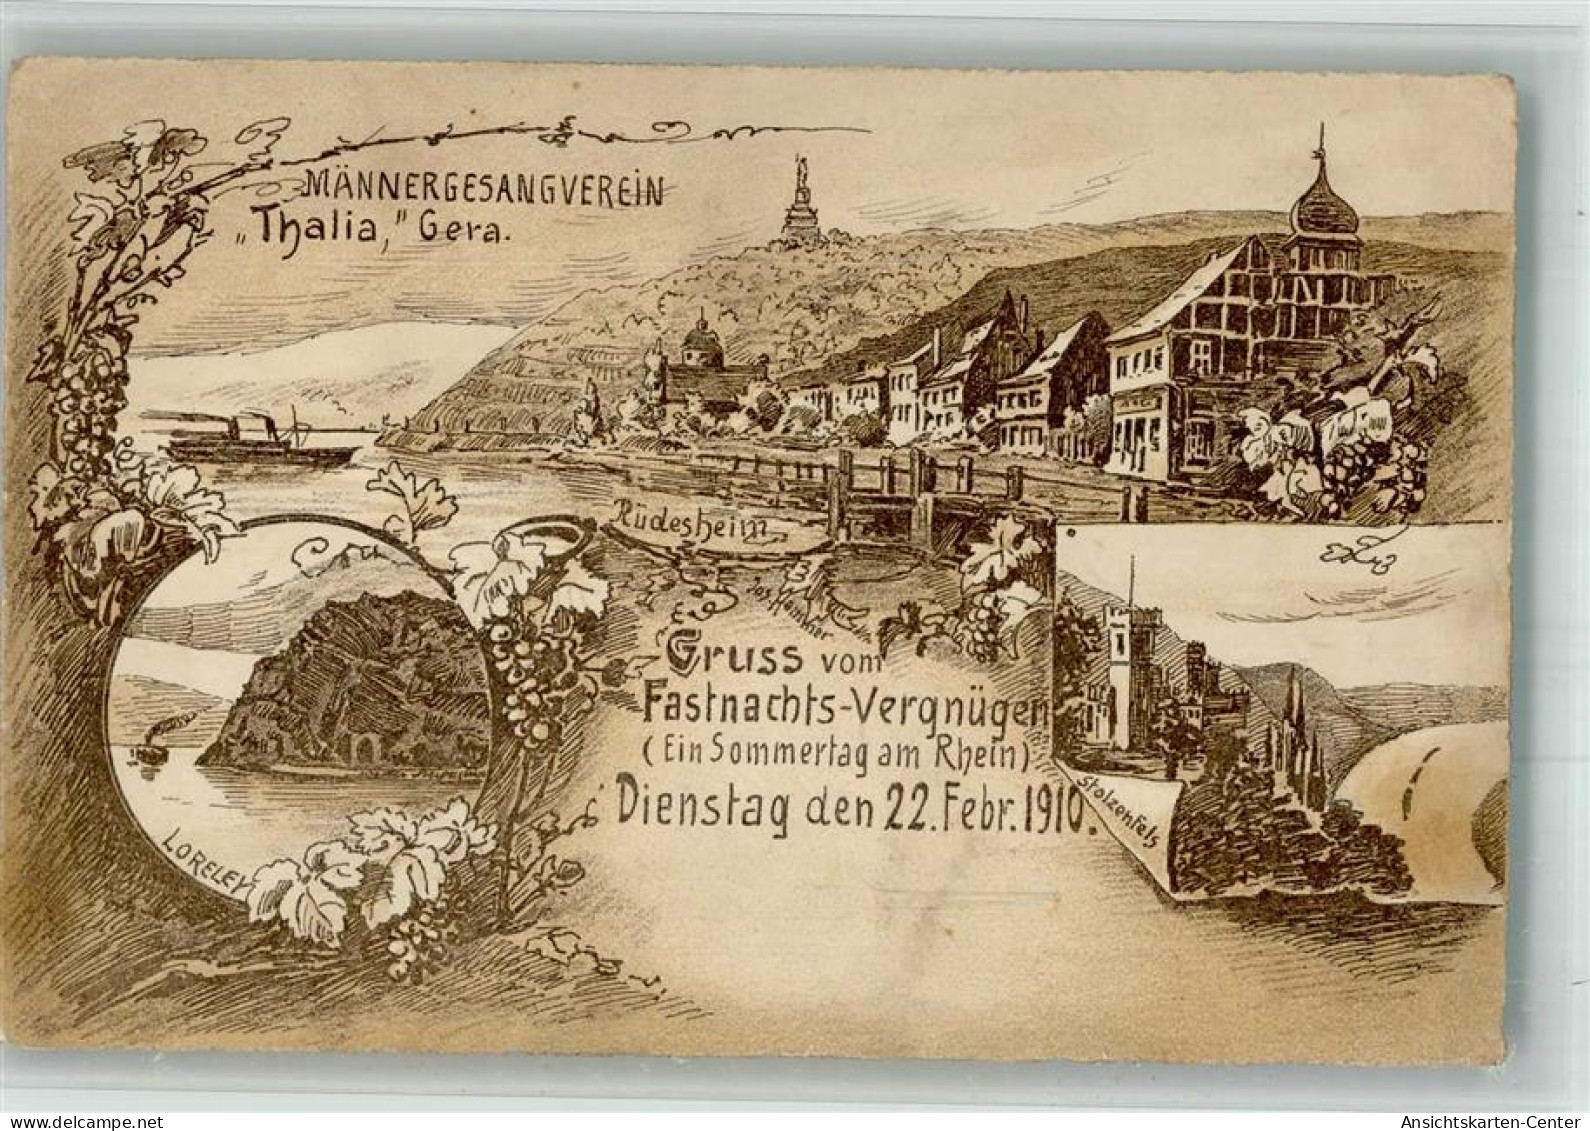 MÄNNERGESANGVEREIN
„Thalia,“ Gera.
Rüdesheim
Gruss vom
Fastnachts-Vergnügen
(Ein Sommertag am Rhein)
Dienstag den 22. Febr. 1910.
LORELEY
Stolzenfels
delcampe.net
Ansichtskarten-Center